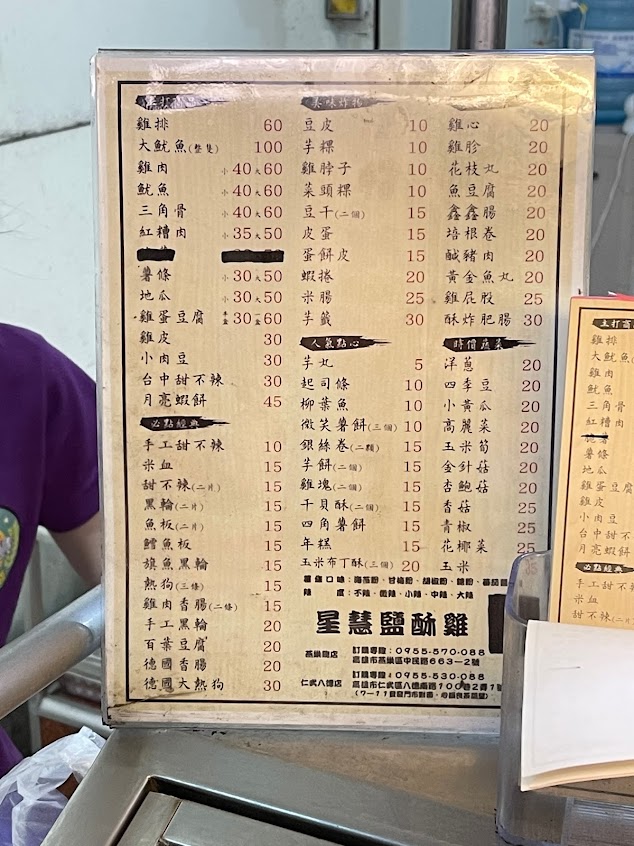 雞排 60
大魷魚(整隻) 100
雞肉 小40大60
魷魚 小40大60
三角骨 小40大60
紅糟肉 小35大50
薯條 小30大50
地瓜 小30大50
雞蛋豆腐 半盒30一盒60
雞皮 30
小肉豆 30
台中甜不辣 30
月亮蝦餅 45
必點經典
手工甜不辣 10
米血 15
甜不辣(二片) 15
黑輪(二片) 15
魚板(二片) 15
鱈魚板 15
旗魚黑輪 15
熱狗(三條) 15
雞肉香腸(二條) 15
手工黑輪 20
百葉豆腐 20
德國香腸 20
德國大熱狗 30
豆皮 10
芋粿 10
雞脖子 10
菜頭粿 10
豆干(二個) 15
皮蛋 15
蛋餅皮 15
蝦捲 20
米腸 25
芋籤 30
人氣點心
芋丸 5
起司條 10
柳葉魚 10
微笑薯餅(三個) 10
銀絲卷(二顆) 15
芋餅(二個) 15
雞塊(二個) 15
干貝酥(二個) 15
四角薯餅 15
年糕 15
玉米布丁酥(三個) 20
雞心 20
雞胗 20
花枝丸 20
魚豆腐 20
鑫鑫腸 20
培根卷 20
鹹豬肉 20
黃金魚丸 20
雞屁股 25
酥炸肥腸 30
時價蔬菜
洋蔥 20
四季豆 20
小黃瓜 20
高麗菜 20
玉米筍 20
金針菇 20
杏鮑菇 20
香菇 25
青椒 25
花椰菜 25
玉米 35
辣度：不辣、微辣、小辣、中辣、大辣
星慧鹽酥雞
燕巢總店
訂購專線：0955-570-088
高雄市燕巢區中民路663-2號
仁武八德店
訂購專線：0955-530-088
高雄市仁武區八德南路100巷2弄1號
雞排
大魷魚
雞肉
魷魚
三角骨
紅糟肉
薯條
地瓜
雞蛋豆腐
雞皮
小肉豆
台中甜不
月亮蝦餅
必點經典
手工甜不
米血
甜不辣